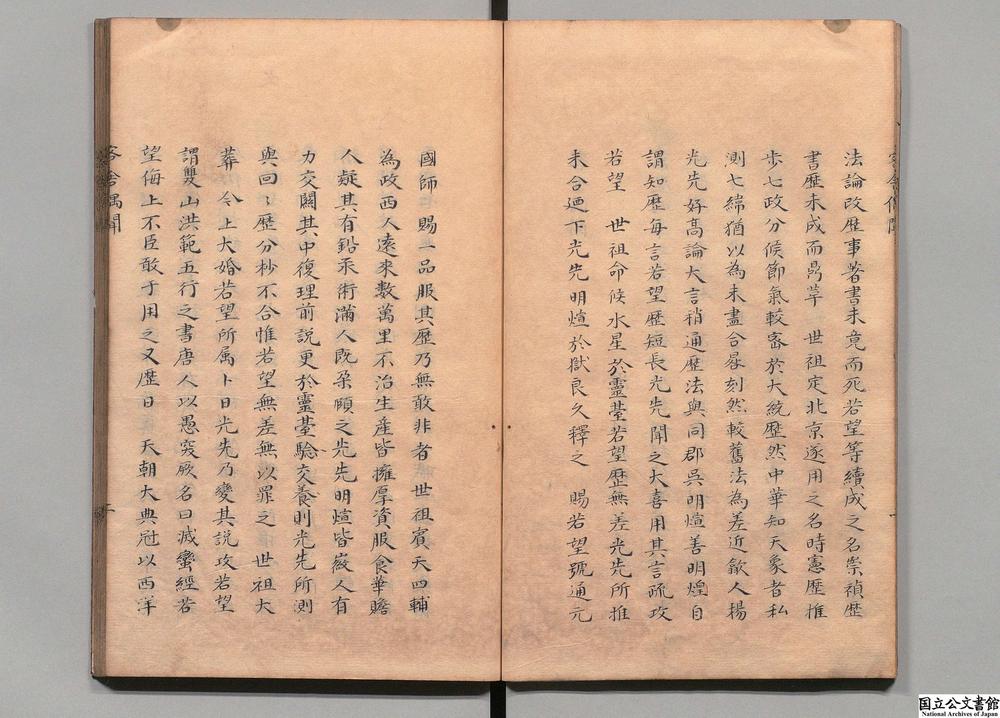 法論改歴事著書未竟而死若望等續成之名崇禎歴
書歴未成而鼎革　世祖定北京遂用之名時憲歴推
歩七政分候節氣較宻於大統歴然中華知天象者私
測七緯猶以為未盡合晷刻然較舊法為差近歙人楊
光先好髙論大言稍通歴法與同郡吳明煊善明煌自
謂知歴每言若望歴短長光先聞之大喜用其言疏攻
若望　世祖命候水星於靈䑓若望歴無差光先所推
未合廼下光先明煊於獄良久釋之　賜若望號通元
國師　賜一品服其歴乃無敢非者　世祖賓天四輔
為政西人遠來數萬里不治生産皆擁厚資服食華贍
人疑其有鉛汞術滿人既朶頤之光先明煊皆嶶人有
力交闗其中復理前説更於靈䑓驗交養則光先所測
與回〻歴分杪不合惟若望無差無以罪之　世祖大
葬　今上大婚若望所属卜日光先乃變其説攻若望
謂雙山洪範五行之書唐人以愚突厥名曰滅蠻經若
望侮上不臣敢于用之又歴日　天朝大典冠以西洋
客舍偶聞